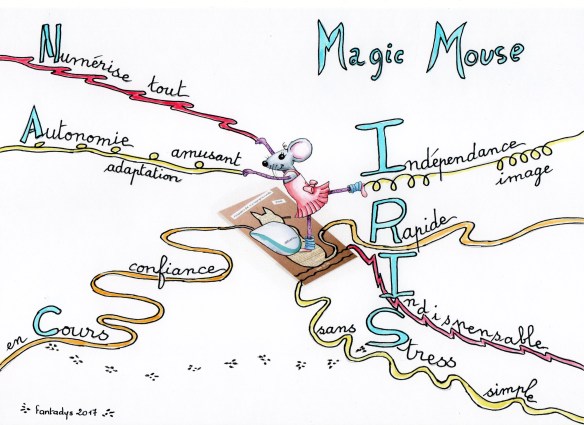 Magic Mouse
Numérise tout
Autonomie
amusant
adaptation
confiance
en Cours
Indépendance
image
Rapide
Indispensable
sans Stress
simple
fantadys 2017